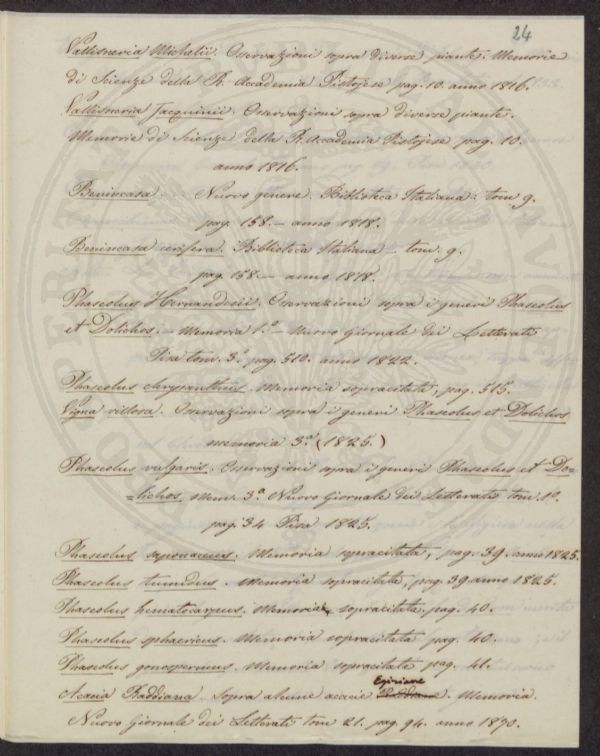 24
Vallisneria Michelii. Osservazioni sopra diverse piante. Memorie
di Scienze della R. Accademia Pistojese pag. 10. anno 1816.
Vallisneria Jacquinii. Osservazioni sopra diverse piante.
Memorie di Scienze della R. Accademia Pistojese pag. 10.
anno 1816.
Benincasa Nuovo genere. Biblioteca Italiana. tom 9.
pag. 158. — anno 1818.
Benincasa cerifera. Biblioteca Italiana — tom. 9.
pag. 158 — anno 1818.
Phaseolus Hernandesii. Osservazioni sopra i generi Phaseolus
et Dolichos. — Memoria 1.ª — Nuovo Giornale dei Letterati
Pisa tom. 3.º pag. 510. anno 1822.
Phaseolus chrysanthus. Memoria sopracitata, pag. 515.
Vigna villosa. Osservazioni sopra i generi Phaseolus et Dolichos
memoria 3.ª (1825.)
Phaseolus vulgaris. Osservazioni sopra i generi Phaseolus et Do=
=lichos. Mem. 3.ª Nuovo Giornale dei Letterati tom. 10.
pag. 34 Pisa 1825.
Phaseolus saponaceus. Memoria sopracitata, pag. 39. anno 1825.
Phaseolus tumidus. Memoria sopracitata, pag. 39 anno 1825.
Phaseolus hematocarpus. Memoria sopracitata. pag. 40.
Phaseolus sphaericus. Memoria sopracitata pag. 40.
Phaseolus gonospermus. Memoria sopracitata pag. 41.
Egiziane
Acacia Raddiana. Sopra alcune acacie Raddiane. Memoria.
Nuovo Giornale dei Letterati tom 21. pag. 94. anno 1830.